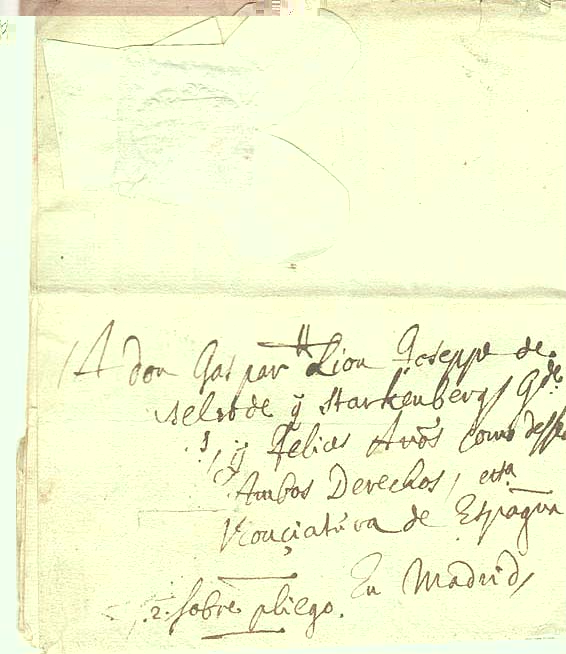 A don Gaspar Lion Gioseppe de
Nelrode ÿ Starkenberg, G.de
ÿ felices Años como desse
Ambos Derechos, esta
Nonçiatura de España
En Madrid,
2. sobre pliego.